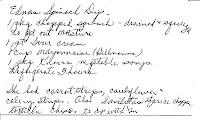 Elmas Spinach Dip.
1 pkg chopped spinach - drained + squeeze
to get out moisture
1 pt sour cream
1 cup mayonnaise (Hellmanns)
1 pkg Knorr vegetable soup
Refrigerate 4 hours
She had carrot strips, cauliflower
celery strips. Also
tortilla chips to dip with it